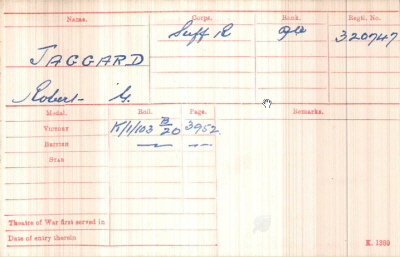 Name. Corps. Rank. Regtl. No.
JAGGARD Suff R Pte 320747
Robert G.
Medal. Roll. Page. Remarks.
VICTORY K/1/103 B/20 3952.
BRITISH — — —
STAR
Theatre of War first served in
Date of entry therein
K. 1380